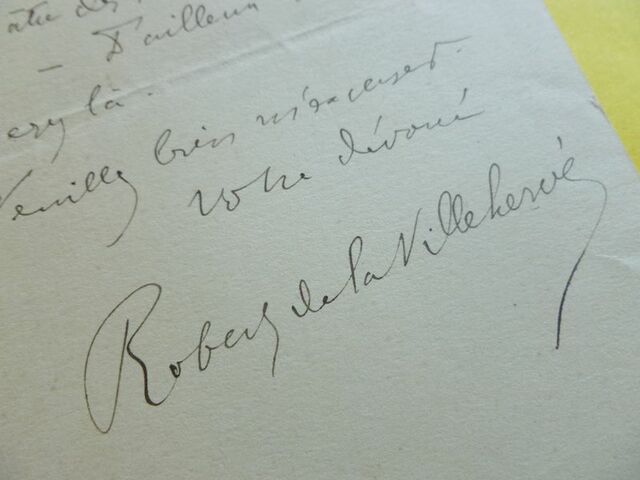 des
– D'ailleurs
là.
Veuillez bien m'excuser.
votre dévoué
Robert de la Villehervé